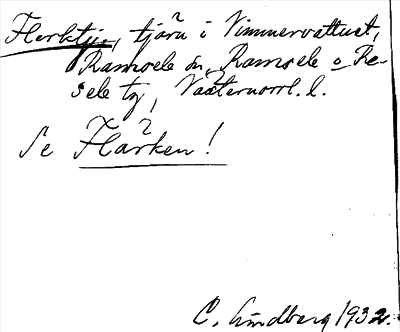 Flerktjn, tjärn i Vimmervattnet,
Ramsele sn, Ramsele o Re-
sele tg, Västernorrl. l.
Se Flärken!
C. Lindberg 1932.